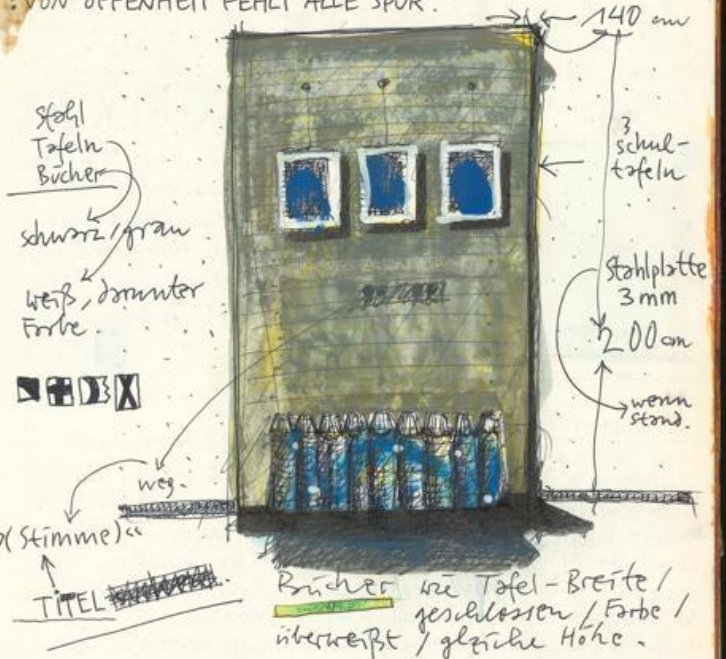 : VON OFFENHEIT FEHLT ALLE SPUR.
140 cm
Stahl
Tafeln
Bücher
schwarz/grau
weiß, darunter
Farbe.
3
schul-
tafeln
Stahlplatte
3mm
200 cm
wenn
stand.
weg.
»(Stimme)«
TITEL
Bücher wie Tafel-Breite /
geschlossen / Farbe /
überweißt / gleiche Höhe.